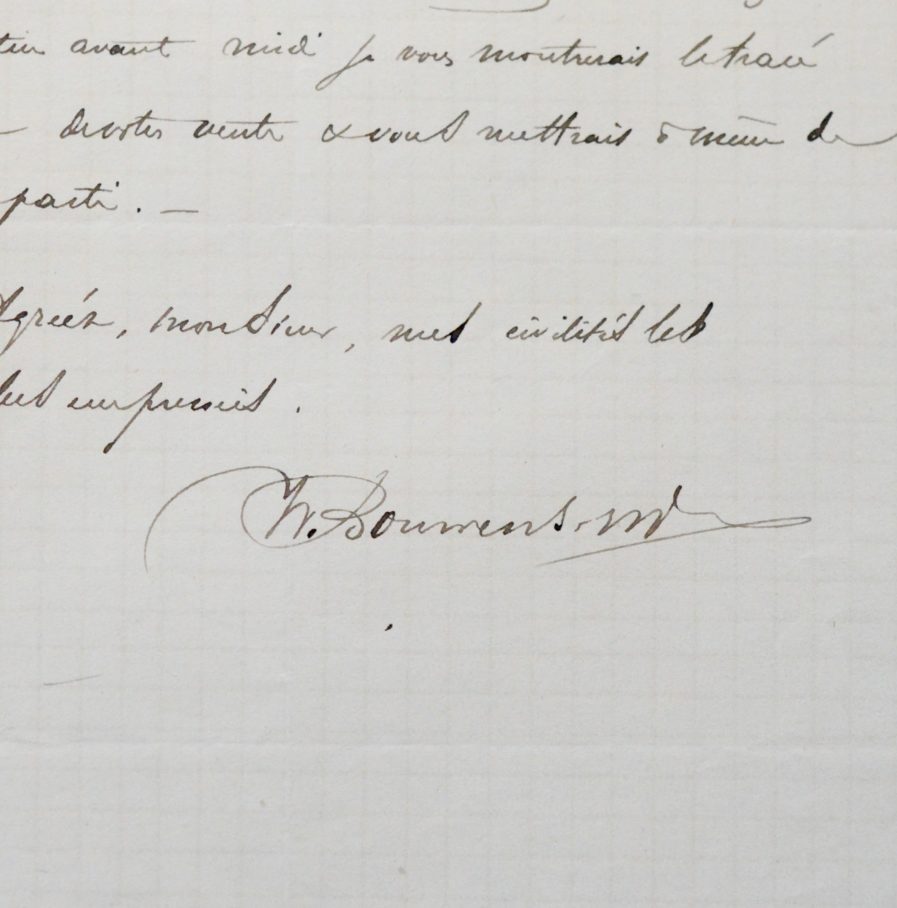 avant midi je vous montrerais le tracé
de votre vente & vous mettrais à même de
parti. —
Agréez, monsieur, mes civilités les
plus empressés.
W. Bouwens